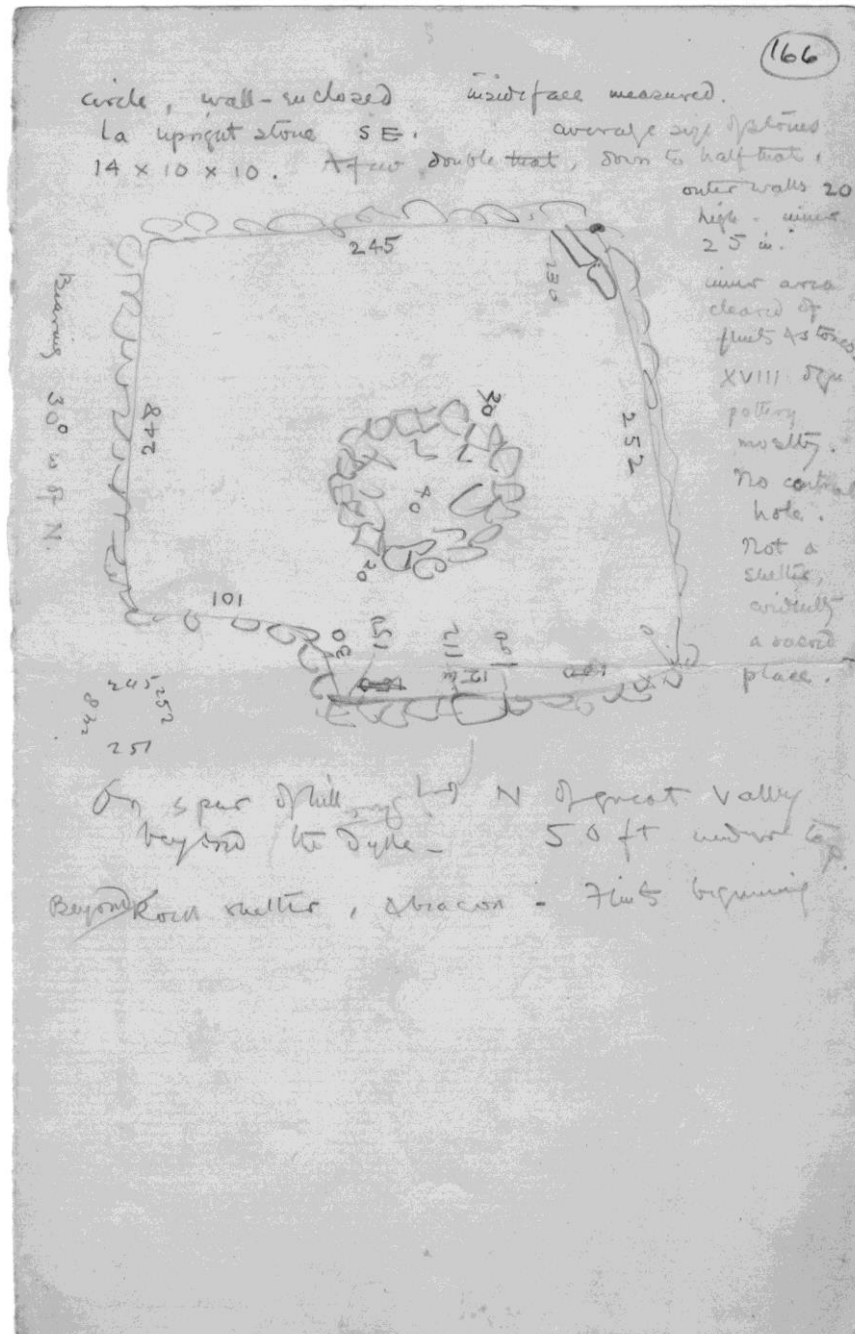 166
circle, wall-enclosed inside face measured.
La upright stone SE. average size of stones
14 x 10 x 10. A few double that, down to half that.
outer walls 20
high. inner
25 in.
inner area
cleared of
flints & stones
XVIII dyn
pottery
mostly.
No central
hole.
Not a
shelter,
evidently
a sacred
place.
245
230
Bearing 30° W of N.
248
252
30
40
20
101
30
151
112
90
12
100
245
248 252
251
On spur of hill N of great valley
beyond the Dyke - 50 ft under top.
Beyond Rock shelter, & beacon - Flints beginning